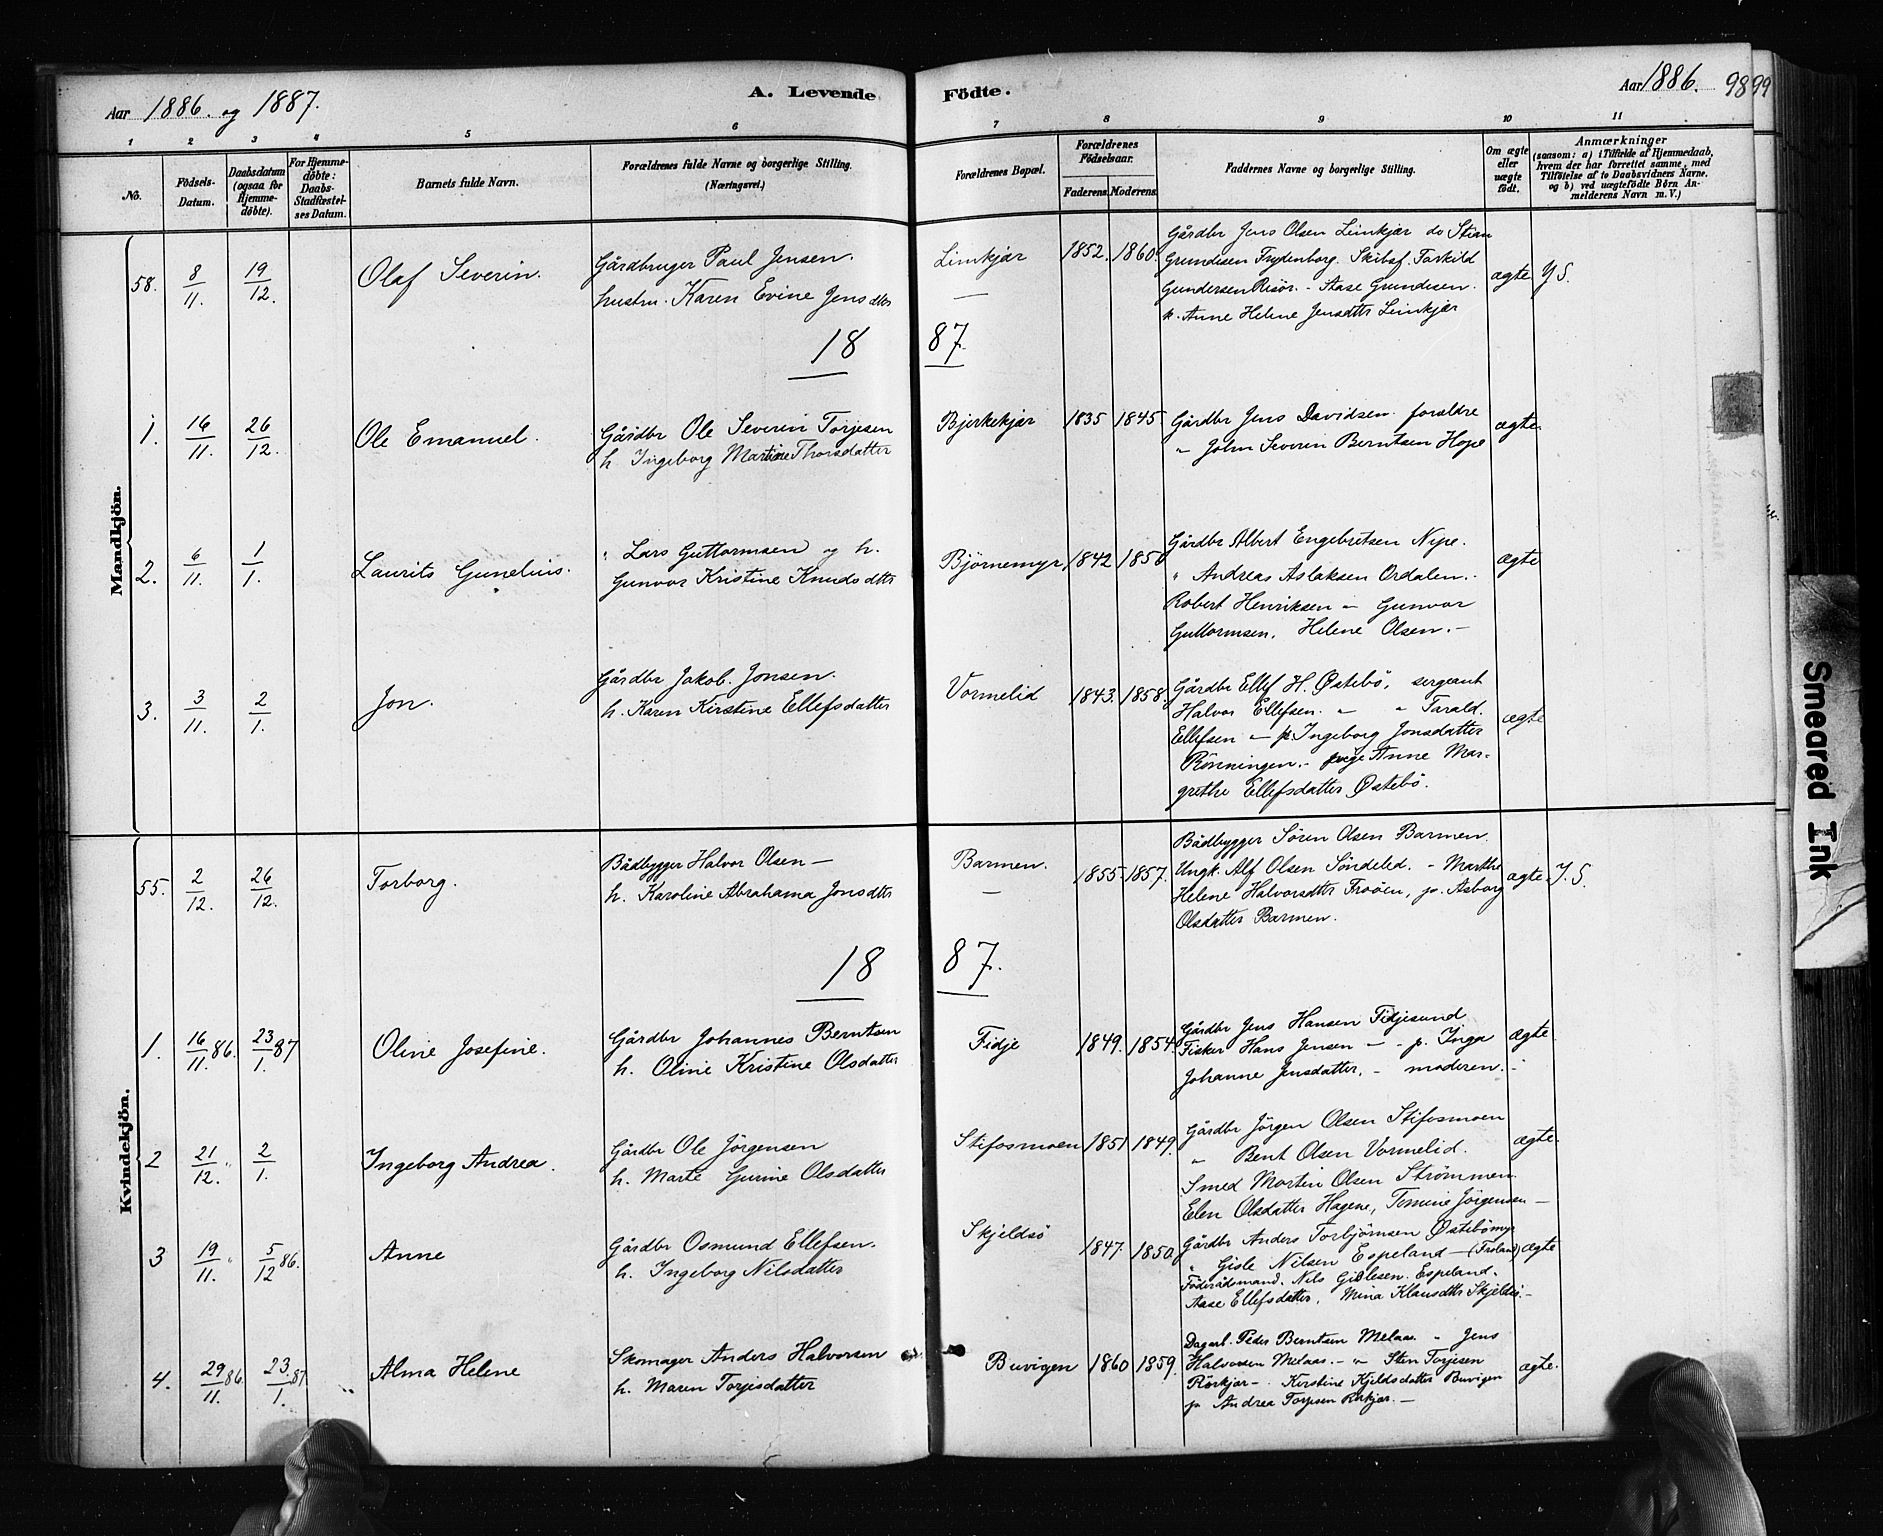 Aar 1886. og 1887.
A. Levende Födte.
Aar 1886. 98 99
1 2 3 4 5 6 7 8 9 10 11
No.
Födsels-Datum.
Daabsdatum (ogsaa for Hjemme-döbte).
For Hjemme-döbte: Daabs-Stadfæstel-ses Datum.
Barnets fulde Navn.
Forældrenes fulde Navne og borgerlige Stilling.
(Næringsvei.)
Forældrenes Bopæl.
Forældrenes Födselsaar.
Faderens. Moderens.
Faddernes Navne og borgerlige Stilling.
Om ægte eller uægte födt.
Anmærkninger
(saasom: a) i Tilfælde af Hjemmedaab, hvem der har forrettet samme, med Tilföielse af to Daabsvidners Navne. og b) ved uægtefödte Börn An-melderens Navn m. V.)
Mandkjön.
58. 8/11. 19/12. Olaf Severin. Gårdbruger Paul Jensen. hustru. Karen Evine Jensdtter Limkjær 1852. 1860.
Gårdbr Jens Olsen Limkjær do Stian
Grundesen Frydenborg. Skibsf. Torkild
Gundersen Risör. - Aase Grundesen.
p. Anne Helene Jensdtter Limkjær
ægte
18 87.
1. 16/11. 26/12. Ole Emanuel. Gårdbr Ole Severin Torjesen h. Ingeborg Martine Thorsdatter Bjerkekjær 1835 1845
Gårdbr Jens Davidsen. forældre
" John Severin Berntsen Hope
ægte.
2. 6/11. 1/1. Laurits Gunelius. " Lars Guttormsen og h. Gunvor Kristine Knudsdtter Björnemyr 1842 1850
Gårdbr Albert Engebretsen Nipe.
" Andreas Aslaksen Ordalen.
Robert Henriksen - Gunvor
Guttormsen. Helene Olsen. -
ægte
3. 3/11. 2/1. Jon. Gårdbr Jakob Jonsen. h. Karen Kirstine Ellefsdatter Vormelid 1843. 1858.
Gårdbr Ellef H. Østebö, sergeant
Halvor Ellefsen. " " Tarald.
Ellefsen - p Ingeborg Jonsdatter
Rönningen. - pige Anne Mar-
grethe Ellefsdatter Østebö.
ægte
Kvindekjön.
55. 2/12. 26/12. Torborg. Bådbygger Halvor Olsen - h. Karoline Abrahama Jonsdtter Barmen. 1855. 1857.
Bådbygger Sören Olsen Barmen.
Ungk. Alf Olsen Söndeled. - Marthe
Helene Halvorsdtter Froöen, p. Asborg
Olsdatter Barmen.
ægte
18 87.
1. 16/11. 86. 23/1. 87 Oline Josefine. Gårdbr Johannes Berntsen h. Oline Kristine Olsdatter Fidje 1849. 1854.
Gårdbr Jens Hansen Fidjesund
Fisker Hans Jensen - - p. Inga
Johanne Jensdatter. - moderen. -
ægte
2 21/12. " 2/1. Ingeborg Andrea. Gårdbr Ole Jörgensen h. Marte Gurine Olsdatter Stifosmoen 1851 1849.
Gårdbr Jörgen Olsen Stifosmoen
" Bent Olsen Vormelid.
Smed Martin Olsen Strömmen
Elen Olsdatter Hagene, Tomine Jörgensen -
ægte.
3 19/11. " 5/12 86. Anne Gårdbr Osmund Ellefsen. h. Ingeborg Nilsdatter Skjeldsö 1847. 1850.
Gårdbr Anders Torbjörnsen Østebömyr
" Gisle Nilsen Espeland - (Froland)
Föderådsmand. Nils Gislesen. Espeland.
Aase Ellefsdatter, Mina Klausdtter Skjeldsö. -
ægte
4. 29/11. 86. 23/1. 87 Alma Helene Skomager Anders Halvorsen h. Maren Torjesdatter Buvigen 1860 1859.
Dagarb. Peder Berntsen Melaas. " Jens
Halvorsen Melaas. - " Sten Torjesen
Rörkjær - Kirstine Kjeldsdatter Buvigen
p Andrea Torjesen Rörkjær. -
ægte.
Smeared Ink